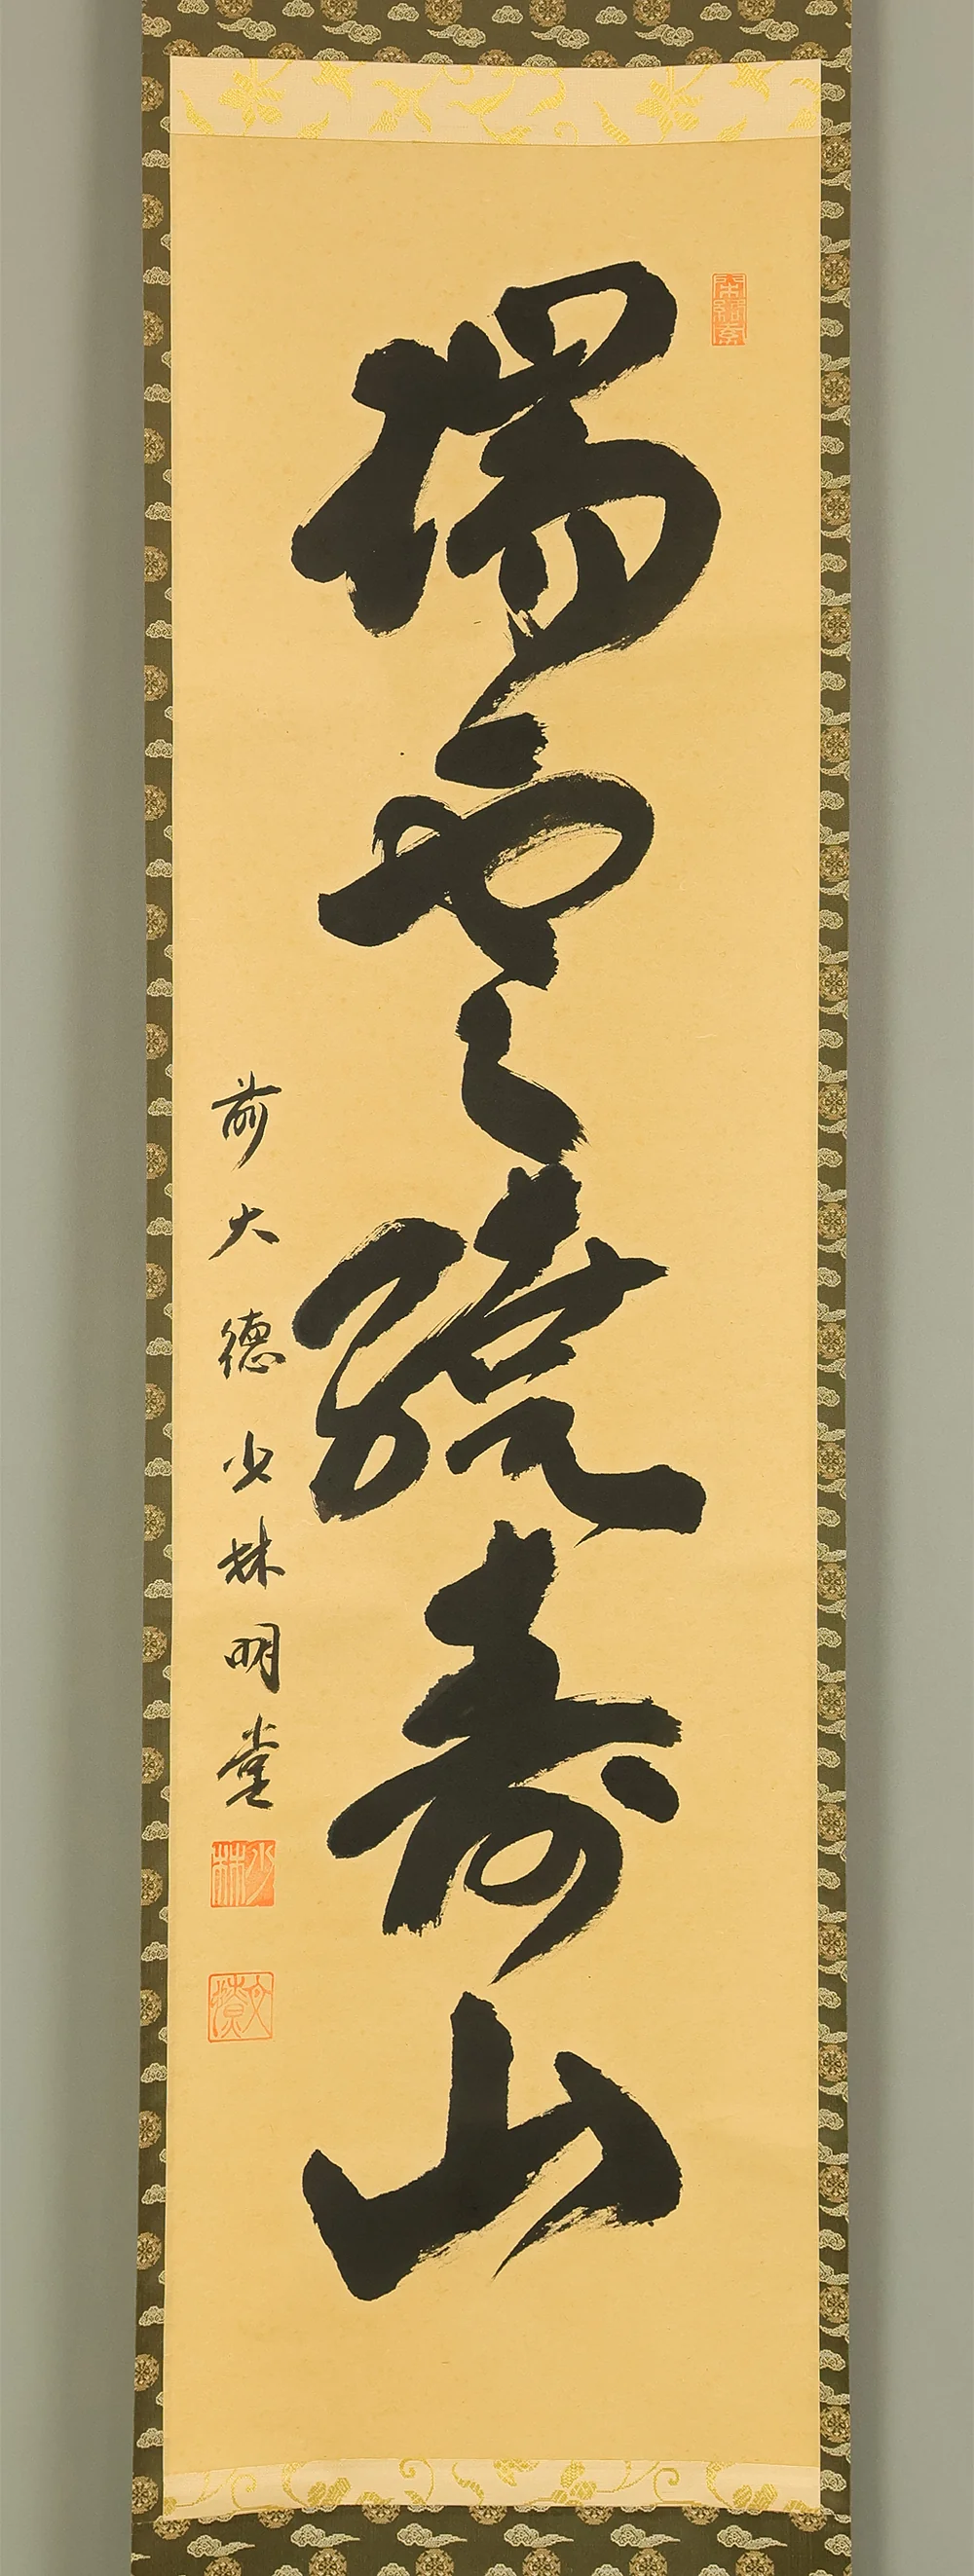 瑞雲繞壽山
前大德少林明堂
少林
文